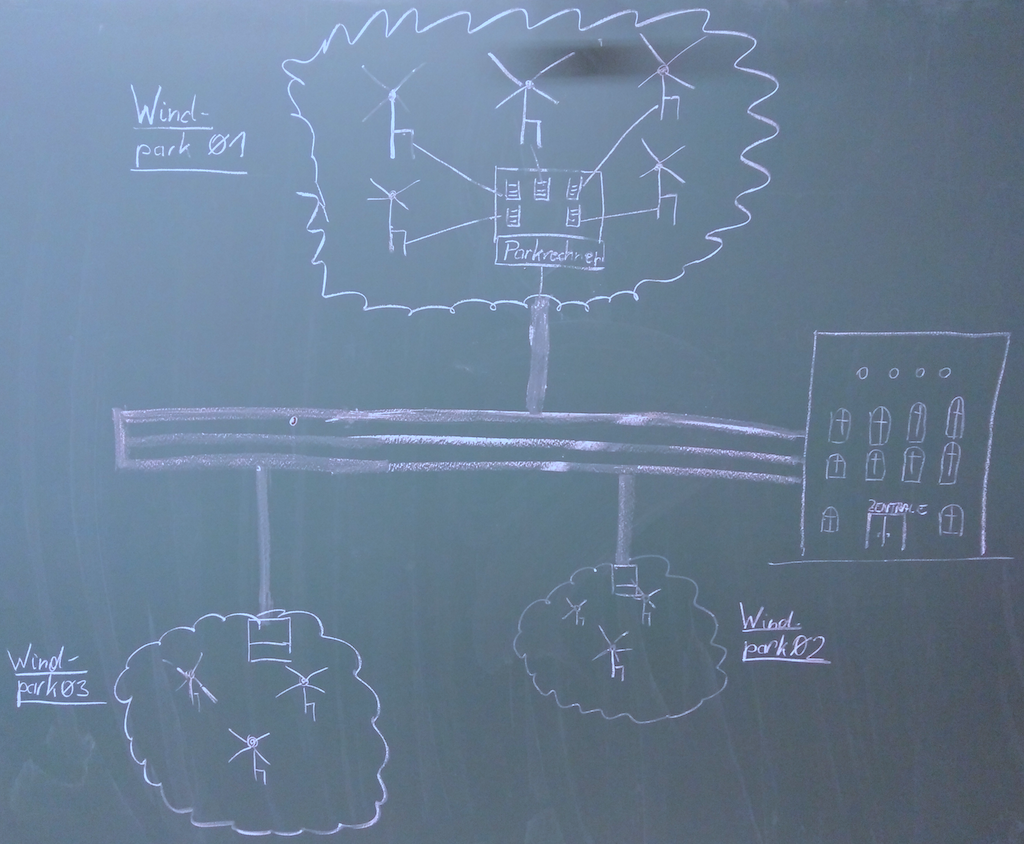 Wind-
park Ø1
Parkrechner
ZENTRALE
Wind-
park Ø2
Wind-
park Ø3